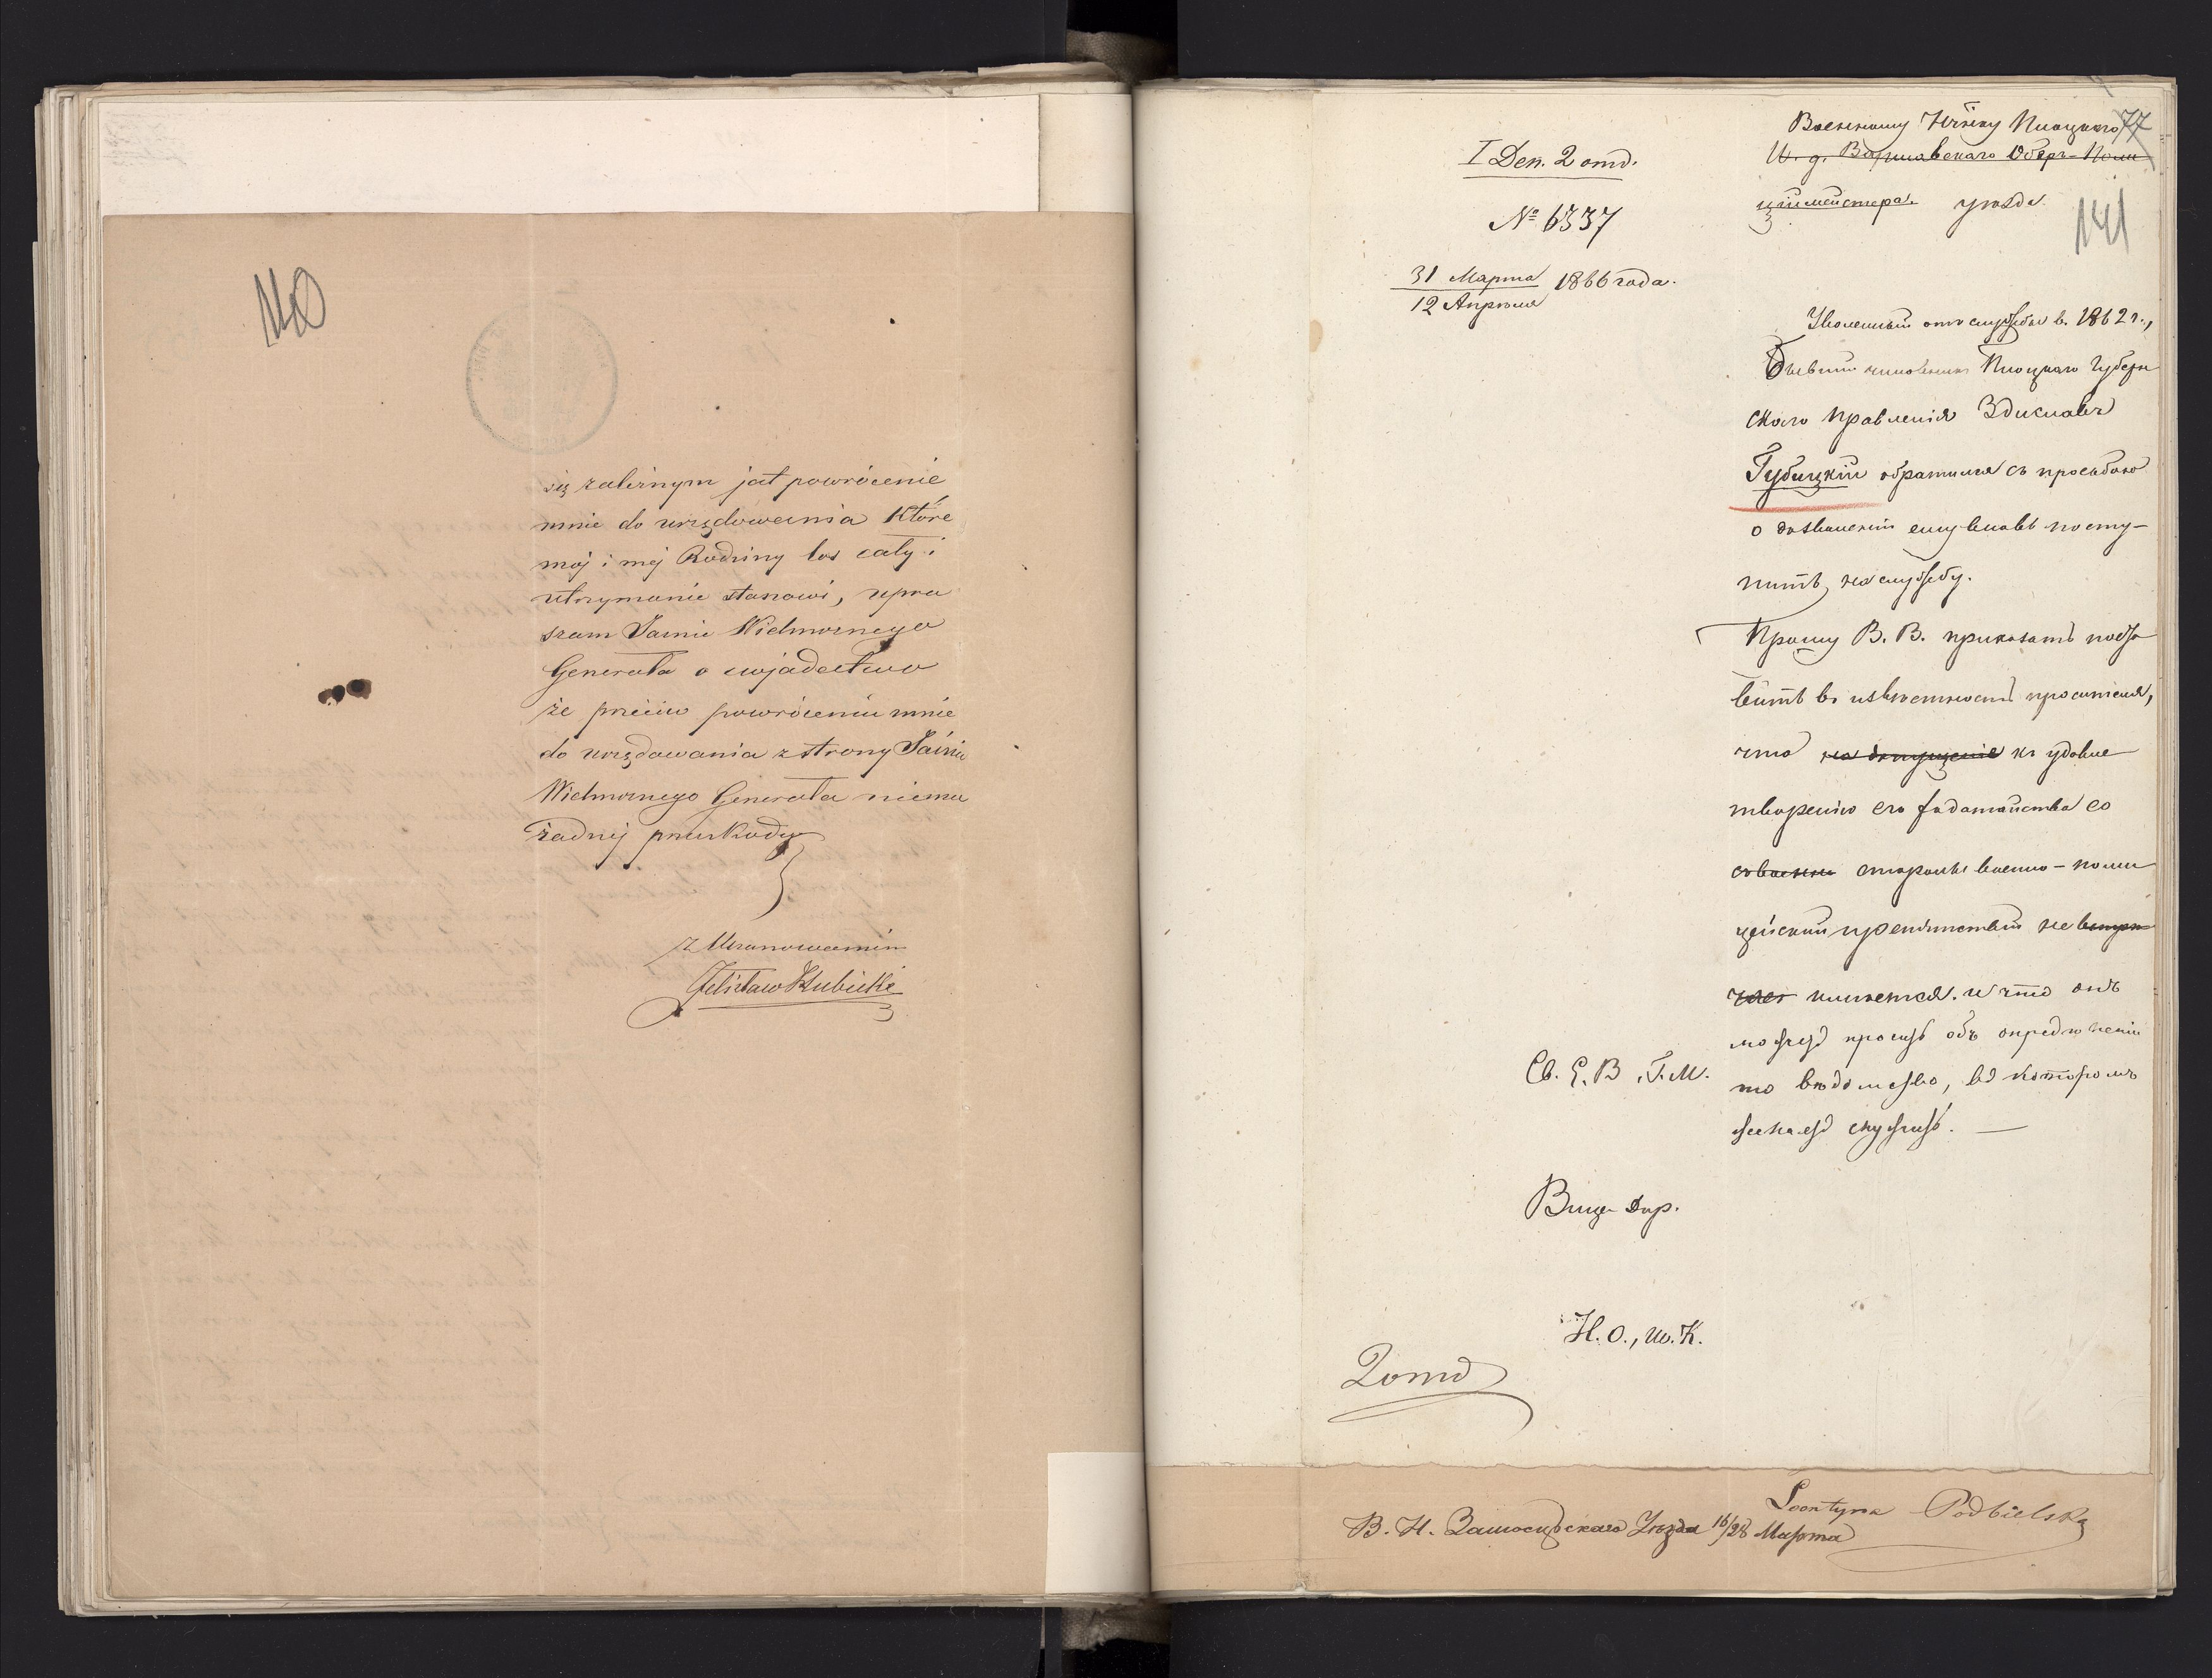 140
się zależnym jest powrócenie
mnie do urzędowania które
mój i mej Rodziny los cały i
utrzymanie stanowi, upra
szam Jaśnie Wielmożnego
Generała o świadectwo
że przeciw powróceniu mnie
do urzędowania z strony Jaśnie
Wielmożnego Generała niema
żadnej przeszkody
z Uszanowaniem
Kubicki
I Деп. 2 отд.
№ 6337
31 Марта
12 Апрѣля 1866 года.
Военному Нчнку Плоцкаго 77
И. д. Варшавскаго Оберъ-Поли
ціймейстера. уѣзда.
141
Уволенный отъ службы в. 1862 г.,
бывшій чиновникъ Плоцкаго Губерн
скаго Правленія Здиславъ
Губицкій обратился съ просьбою
о дозволеніи ему вновь посту-
пить на службу.
Прошу В. В. приказать поста
вить въ извѣстность просителя,
что на допущеніе къ удовле
творенію его ходатайства со
стороны военно-поли
цейской препятствій не встрѣ
чает имѣется. и что онъ
можетъ просить объ опредѣленіи
то вѣдомство, въ которомъ
желаетъ служить. —
Св. Е. В. Г. М.
Вице Дир.
Н. О., Ш. К.
2 отд
Leontyna Podbielska
В. Н. Замосцьскаго Уѣзда 16/28 Марта